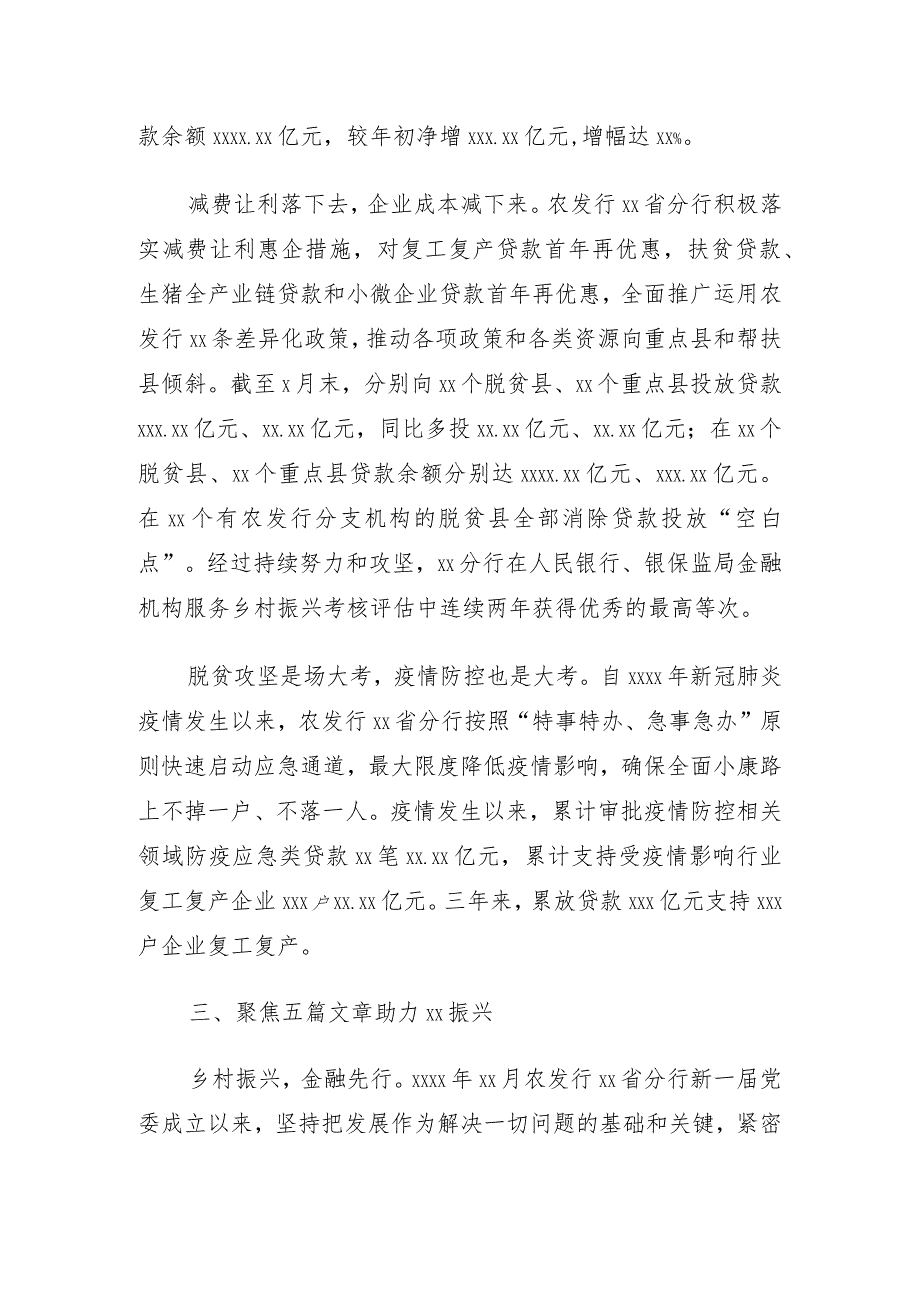 款余额 xxxx.xx 亿元，较年初净增 xxx.xx 亿元,增幅达 xx%。
减费让利落下去，企业成本减下来。农发行 xx 省分行积极落
实减费让利惠企措施，对复工复产贷款首年再优惠，扶贫贷款、
生猪全产业链贷款和小微企业贷款首年再优惠，全面推广运用农
发行 xx 条差异化政策，推动各项政策和各类资源向重点县和帮扶
县倾斜。截至 x 月末，分别向 xx 个脱贫县、xx 个重点县投放贷款
xxx.xx 亿元、xx.xx 亿元，同比多投 xx.xx 亿元、xx.xx 亿元；在 xx 个
脱贫县、xx 个重点县贷款余额分别达 xxxx.xx 亿元、xxx.xx 亿元。
在 xx 个有农发行分支机构的脱贫县全部消除贷款投放“空白
点”。经过持续努力和攻坚，xx 分行在人民银行、银保监局金融
机构服务乡村振兴考核评估中连续两年获得优秀的最高等次。
脱贫攻坚是场大考，疫情防控也是大考。自 xxxx 年新冠肺炎
疫情发生以来，农发行 xx 省分行按照“特事特办、急事急办”原
则快速启动应急通道，最大限度降低疫情影响，确保全面小康路
上不掉一户、不落一人。疫情发生以来，累计审批疫情防控相关
领域防疫应急类贷款 xx 笔 xx.xx 亿元，累计支持受疫情影响行业
复工复产企业 xxx 户 xx.xx 亿元。三年来，累放贷款 xxx 亿元支持 xxx
户企业复工复产。
三、聚焦五篇文章助力 xx 振兴
乡村振兴，金融先行。xxxx 年 xx 月农发行 xx 省分行新一届党
委成立以来，坚持把发展作为解决一切问题的基础和关键，紧密